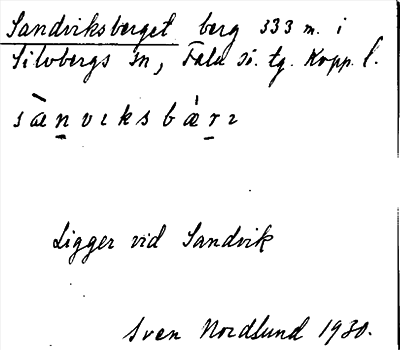 Sandviksberget berg 333 m. i
Silvbergs sn, Falu sö. tg. Kopp. l.
sànvıksbàrı
Ligger vid Sandvik
Sven Nordlund 1930.